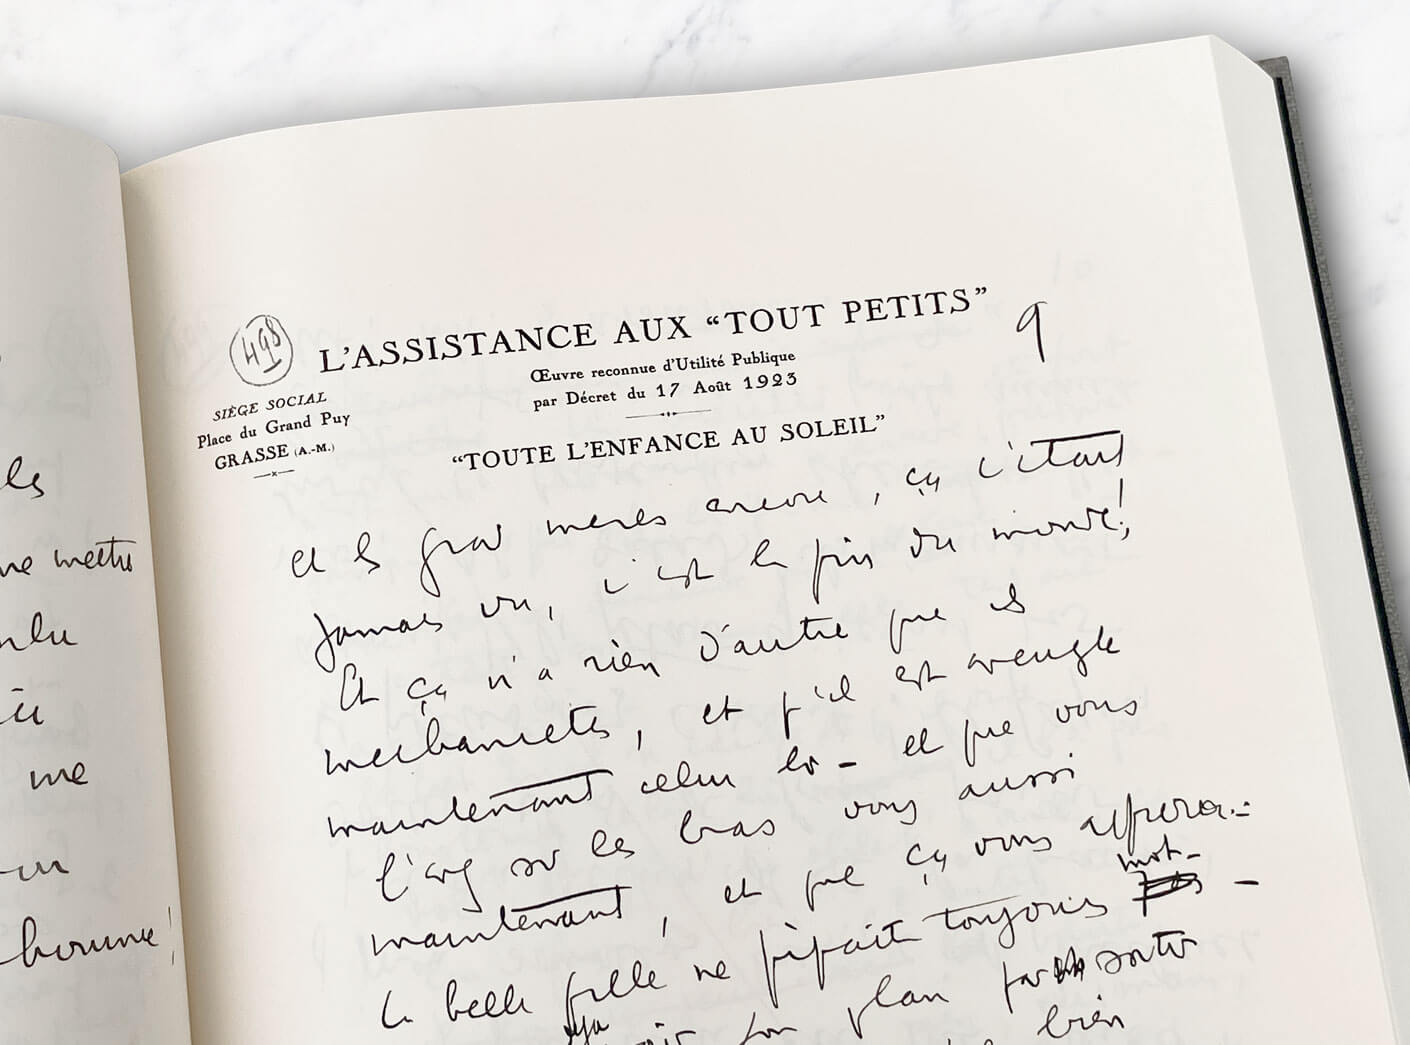 ls
me mettre
me
homme !
498
L'ASSISTANCE AUX “TOUT PETITS”
9
Œuvre reconnue d'Utilité Publique
par Décret du 17 Août 1923
SIÈGE SOCIAL
Place du Grand Puy
GRASSE (A.-M.)
“TOUTE L'ENFANCE AU SOLEIL”
et mères encore, ça c'était
jamais vu, c'est la fin du monde!,
Et ça n'a rien d'autre que
mechancetés, et qu'il est aveugle
maintenant celui là - et que vous
l'avez sur les bras vous aussi
maintenant, et que ça vous
mot-
la belle fille ne pipait toujours -
son plan par sortir
bien